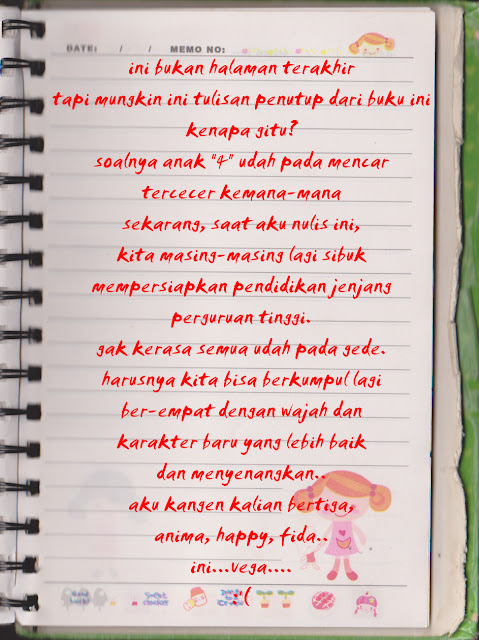 DATE: / / MEMO NO:
ini bukan halaman terakhir
tapi mungkin ini tulisan penutup dari buku ini
kenapa gitu?
soalnya anak "4" udah pada mencar
tercecer kemana-mana
sekarang, saat aku nulis ini,
kita masing-masing lagi sibuk
mempersiapkan pendidikan jenjang
perguruan tinggi.
gak kerasa semua udah pada gede.
harusnya kita bisa berkumpul lagi
ber-empat dengan wajah dan
karakter baru yang lebih baik
dan menyenangkan..
aku kangen kalian bertiga,
anima, happy, fida..
ini...vega....
:(